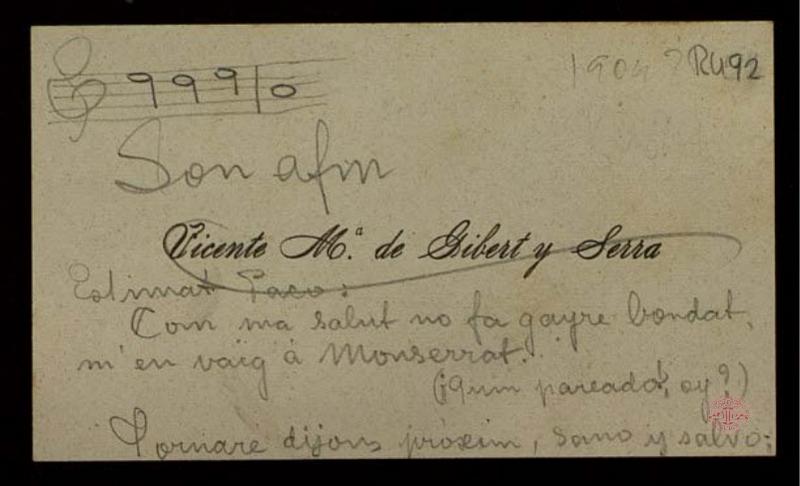 1904? RU92
Son afm
Vicente M.ª de Gibert y Serra
Estimat Paco:
Com ma salut no fa gayre bondat,
m'en vaig á Monserrat.
(¡quin pareado!, oy?)
Tornaré dijous próxim, sano y salvo: